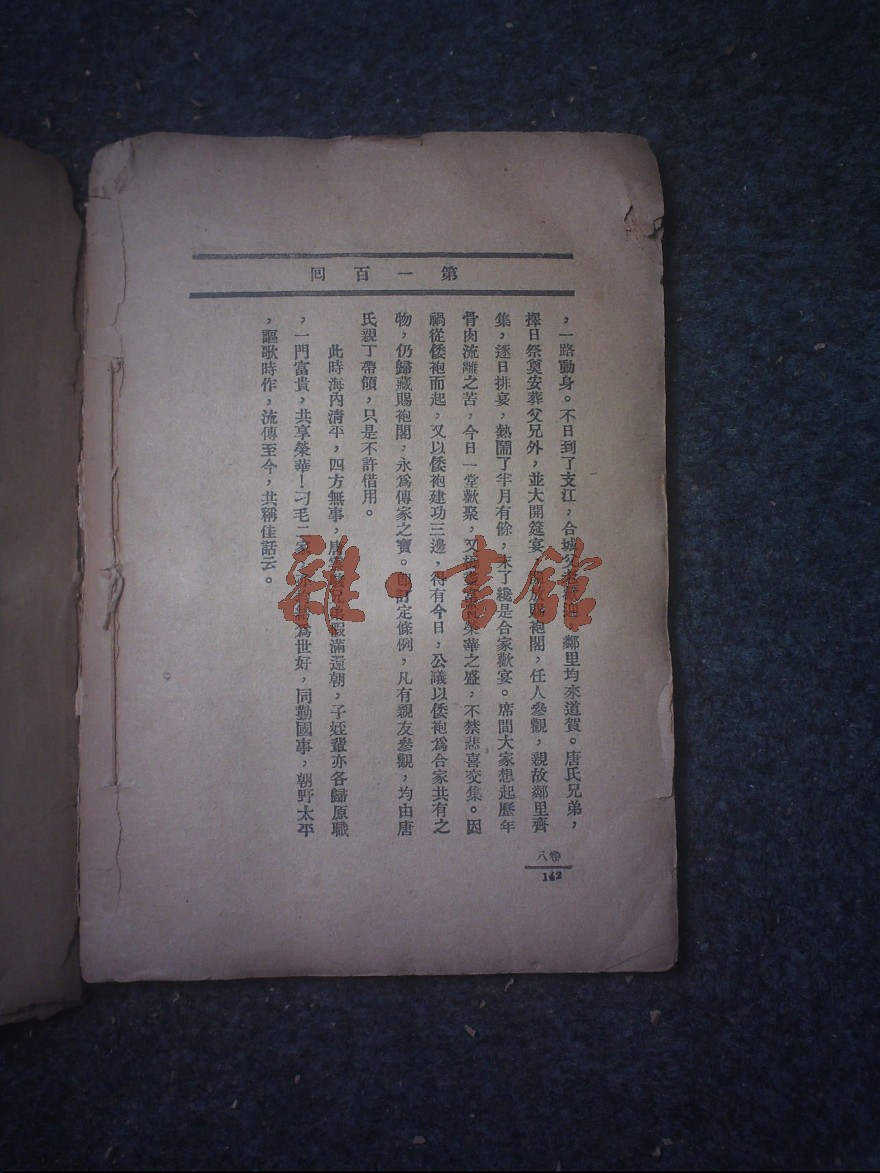 第一百回
，一路動身。不日到了支江，合城父老歡迎，鄰里均來道賀。唐氏兄弟，
擇日祭奠安葬父兄外，並大開筵宴，開放賜袍閣，任人參觀，親故鄰里齊
集，逐日排宴，熱鬧了半月有餘，末了纔是合家歡宴。席間大家想起歷年
骨肉流離之苦，今日一堂歡聚，又榮華之盛，不禁悲喜交集。因
禍從倭袍而起，又以倭袍建功三邊，得有今日，公議以倭袍爲合家共有之
物，仍歸藏賜袍閣，永爲傳家之寶。即訂定條例，凡有親友參觀，均由唐
氏親丁帶領，只是不許借用。
此時海內清平，四方無事，唐兄弟假滿還朝，子姪輩亦各歸原職
，一門富貴，共享榮華！刁毛二家，亦爲世好，同勤國事，朝野太平
，謳歌時作，流傳至今，共稱佳話云。
卷八
142
雜·書館